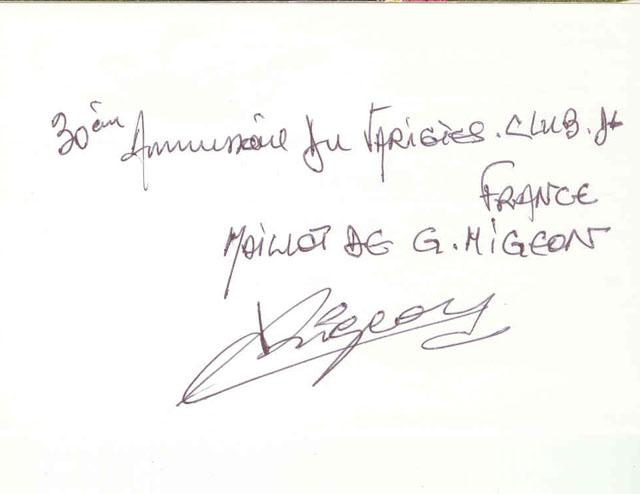 30ème Anniversaire du VARIETES.CLUB.de
FRANCE
MAILLOT DE G.MIGEON
Migeon